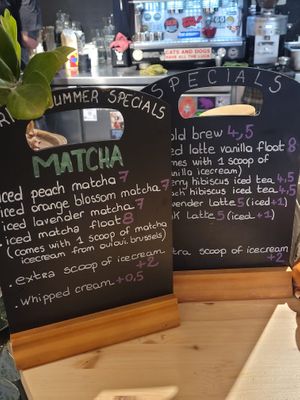 SUMMER SPECIALS
MATCHA
iced peach matcha 7
iced orange blossom matcha 7
iced lavender matcha 7
iced matcha float 8
(comes with 1 scoop of matcha
icecream from oului, brussels)
. extra scoop of icecream
+2
. Whipped cream +0,5
SPECIALS
cold brew 4,5
iced latte vanilla float 8
(comes with 1 scoop of
vanilla icecream)
berry hibiscus iced tea 4,5
hibiscus iced tea 4,5
lavender Latte 5 (iced +1)
Latte 5 (iced +1)
extra scoop of icecream
+2
CATS AND DOGS